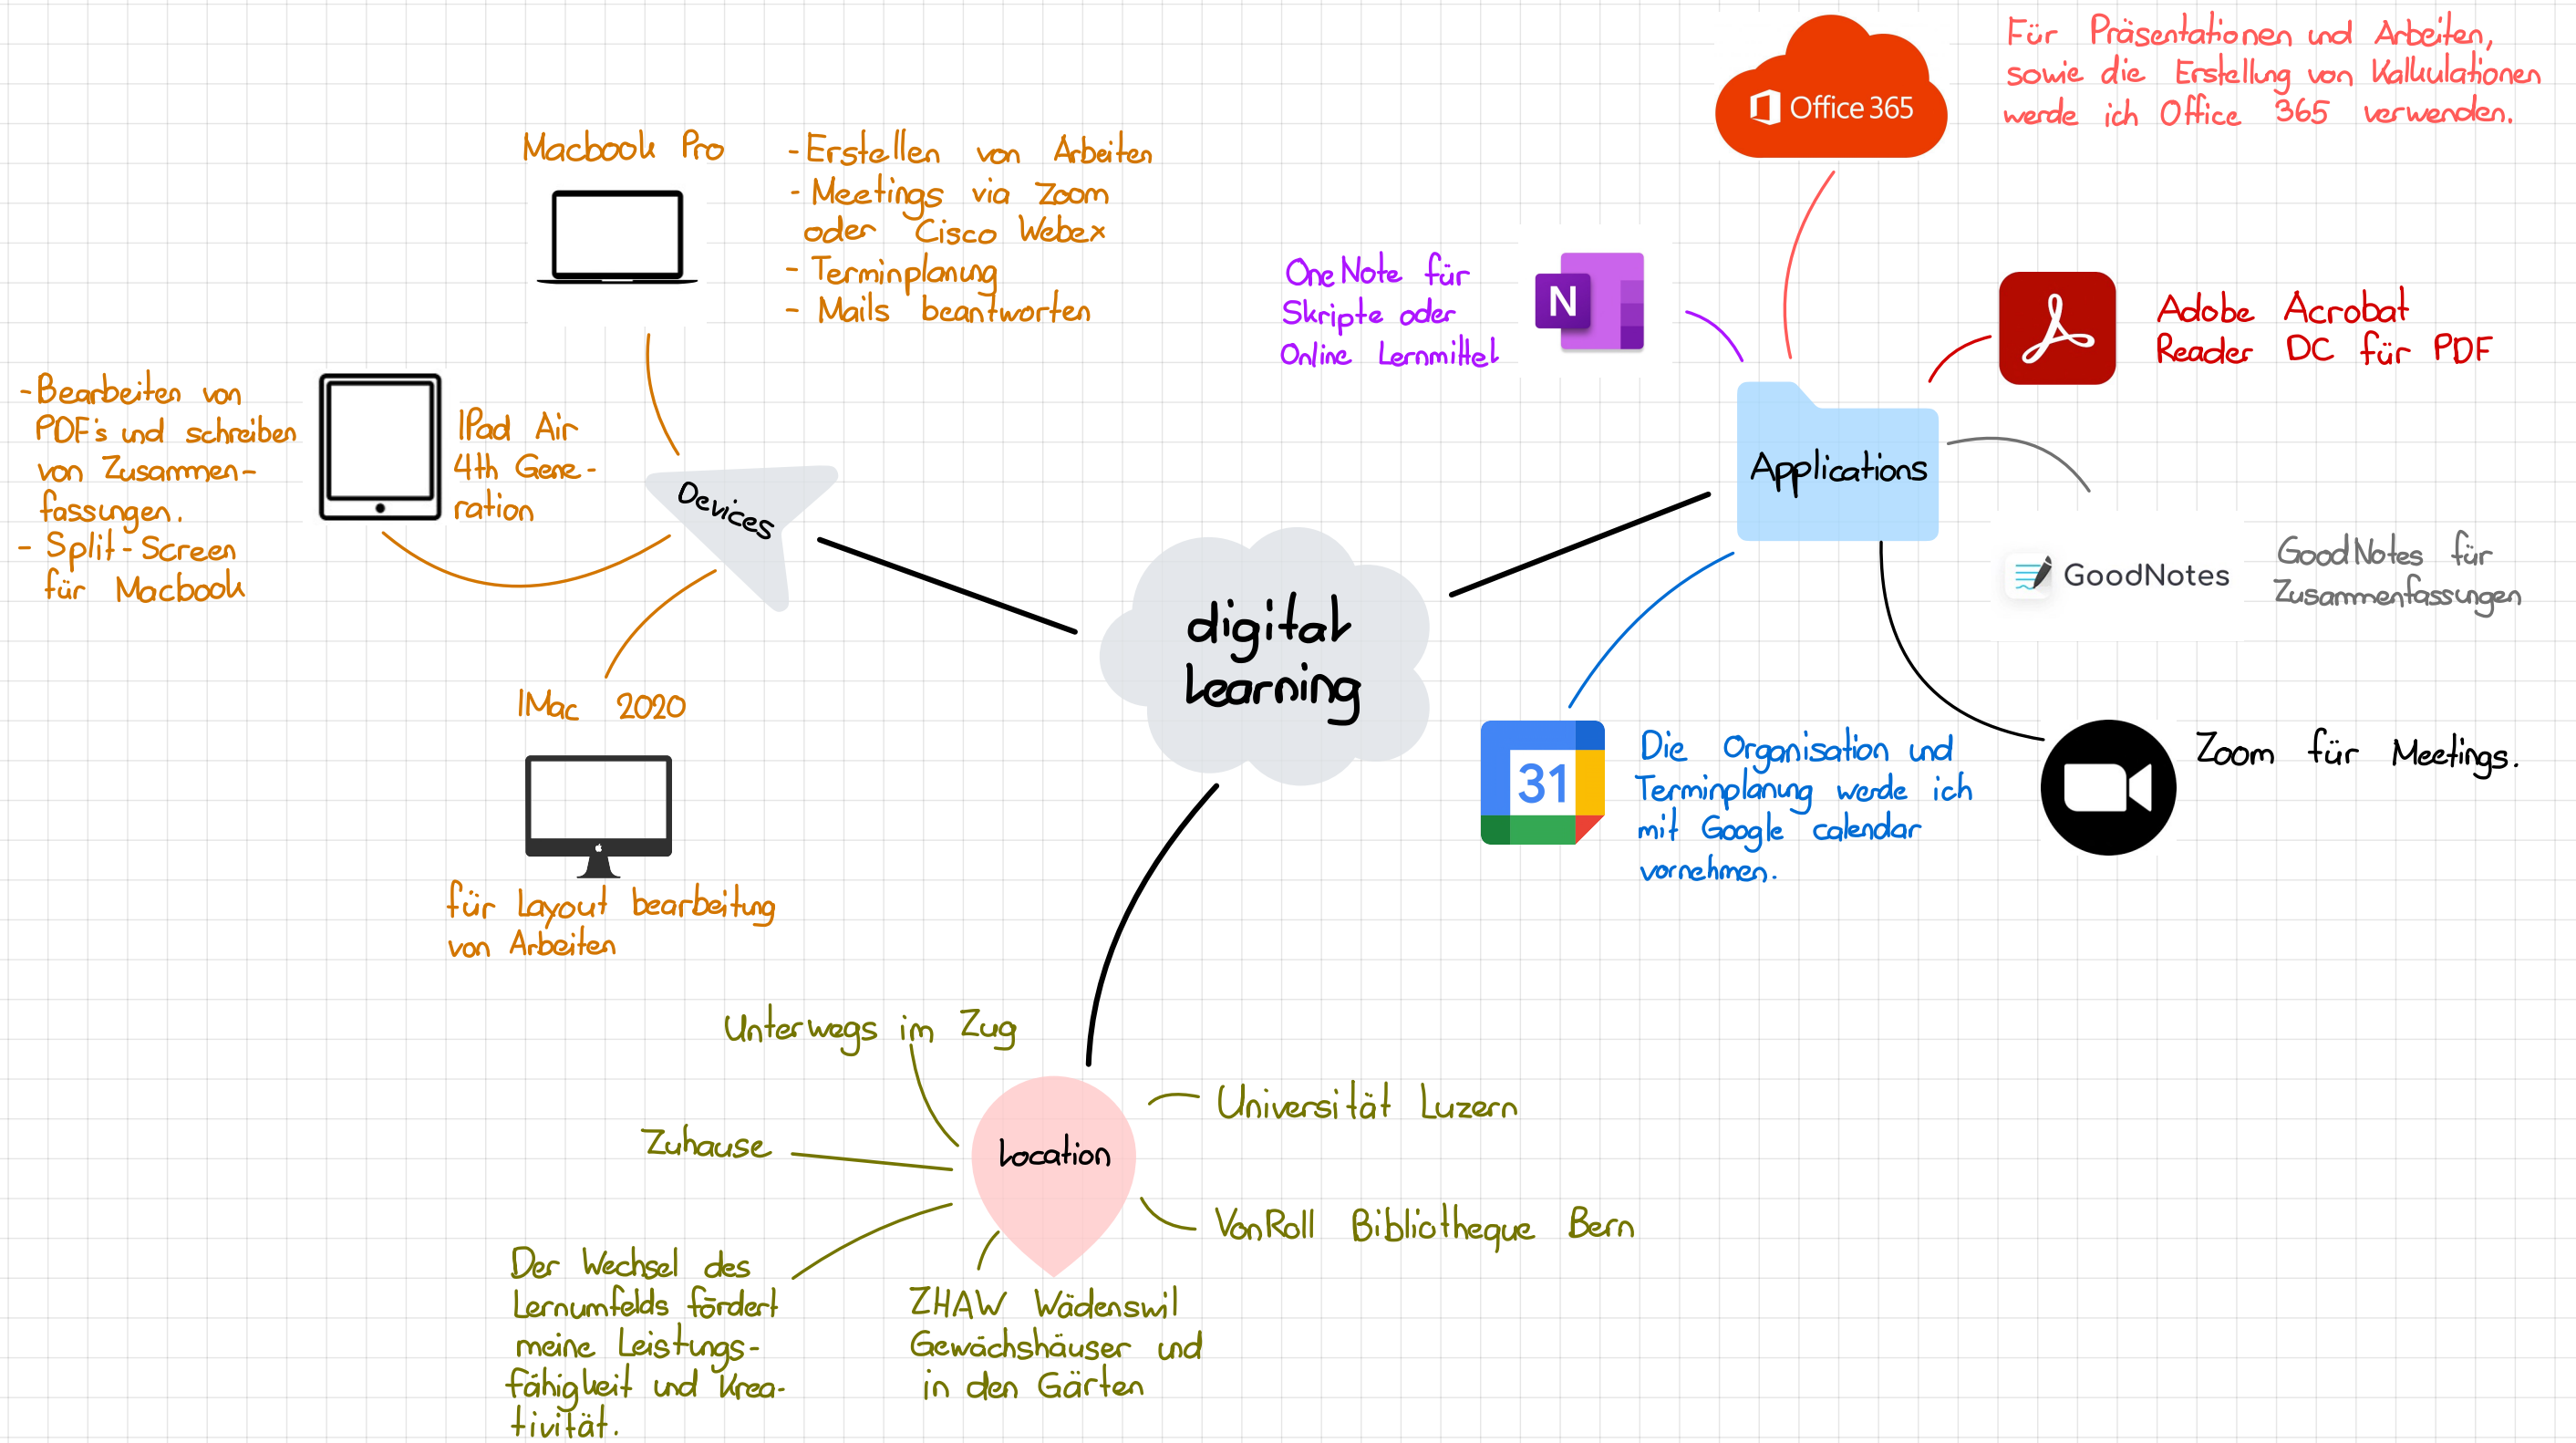 digital
learning
Devices
Macbook Pro
- Erstellen von Arbeiten
- Meetings via Zoom
oder Cisco Webex
- Terminplanung
- Mails beantworten
IPad Air
4th Gene-
ration
- Bearbeiten von
PDF's und schreiben
von Zusammen-
fassungen.
- Split-Screen
für Macbook
IMac 2020
für Layout bearbeitung
von Arbeiten
Applications
Office 365
Für Präsentationen und Arbeiten,
sowie die Erstellung von Kalkulationen
werde ich Office 365 verwenden.
OneNote für
Skripte oder
Online Lernmittel
N
Adobe Acrobat
Reader DC für PDF
GoodNotes
GoodNotes für
Zusammenfassungen
Zoom für Meetings.
31
Die Organisation und
Terminplanung werde ich
mit Google calendar
vornehmen.
Location
Unterwegs im Zug
Zuhause
Der Wechsel des
Lernumfelds fördert
meine Leistungs-
fähigkeit und Krea-
tivität.
ZHAW Wädenswil
Gewächshäuser und
in den Gärten
Universität Luzern
VonRoll Bibliotheque Bern